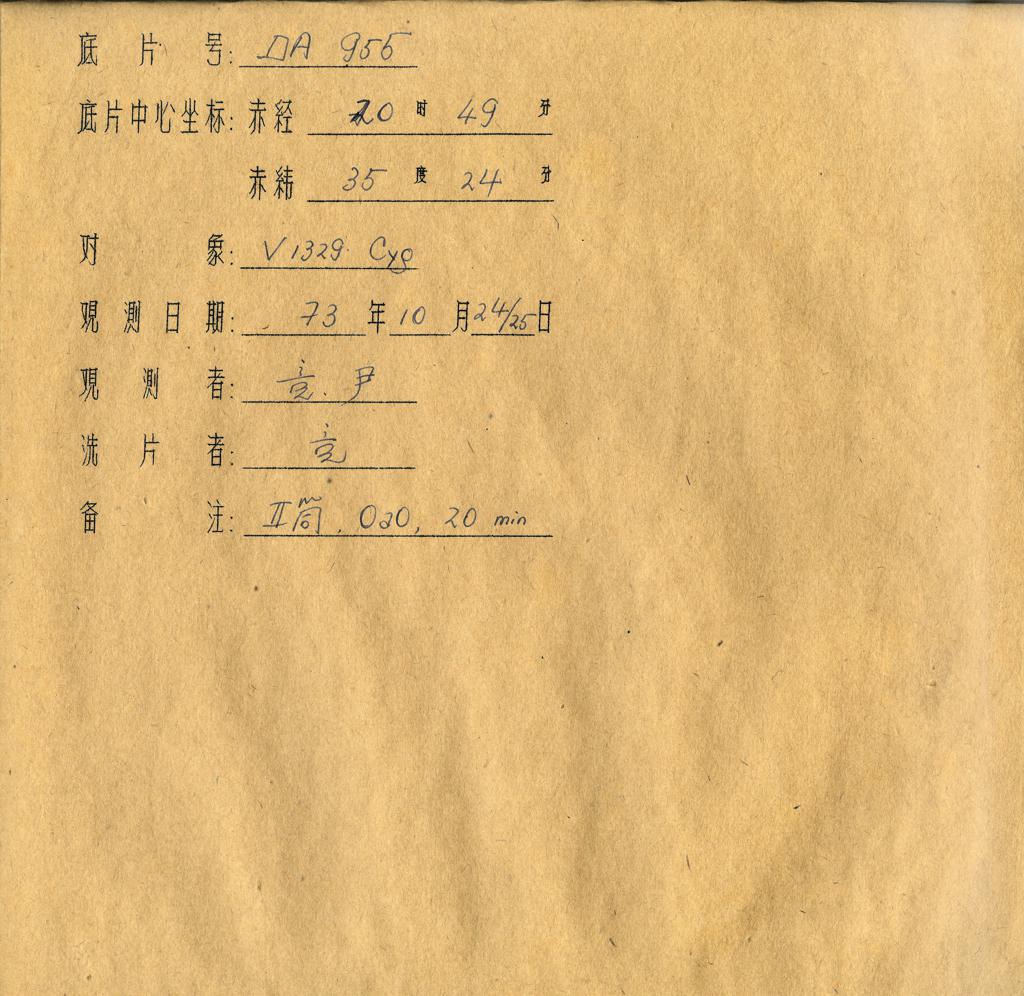 底片号: DA 955
底片中心坐标: 赤経 20 时 49 分
赤緯 35 度 24 分
对象: V1329 Cyg
观測日期: 73 年 10 月 24/25 日
观測者: 竞、尹
洗片者: 竞
备注: II筒, OaO, 20 min